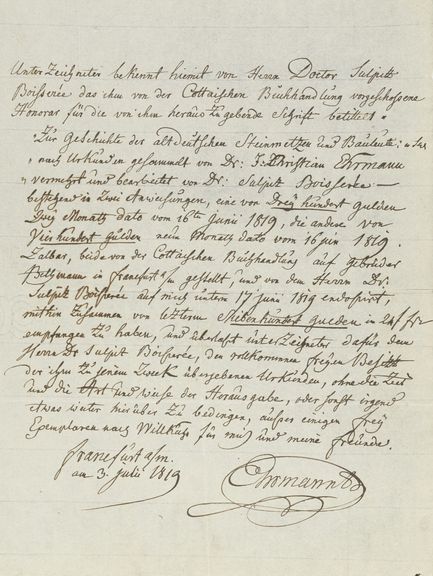 Unterzeichneter bekennt hiemit von Herrn Doctor Sulpitz
Boisserée das ihm von der Cottaischen Buchhandlung vorgeschossene
Honorar für die von ihm herauszugebende Schrift betitelt
"Zur Geschichte der altdeutschen Steinmetzen und Bauleute;
" nach Urkunden gesammelt von Dr: J: Christian Ehrmann
" vermehrt und bearbeitet von Dr: Sulpitz Boisserée —
bestehend in zwei Anweisungen, eine von Drey hundert gulden
Drey Monath dato vom 16ten Junii 1819, die andere von
Vierhundert gulden neun Monath dato vom 16 Jun 1819.
Zalbar, beide von der Cottaischen Buchhandlung auf gebrüder
Bethmann in Francfurt a/m gestellt, und von dem Herrn Dr:
Sulpitz Boisserée auf mich unterm 17 Junii 1819 endossirt,
mithin zusamen von letzterm Siebenhundert gulden in 24 f
empfangen zu haben, und überlaßt unterzeichneter dafür dem
Herrn Dr Sulpit Boisserée, den vollkommen freyen Besitz
der ihm zu jenem Zwek übergebenen Urkunden, ohne die Zeit
und die Art und weise der Herausgabe, oder sonst irgend
etwas weiter hierüber zu bedingen, ausser einigen frey
Exemplaren nach Willkuhr für mich und meine freunde.
francfurt a/m.
am 3. Julii 1819
Ehrmann Dr